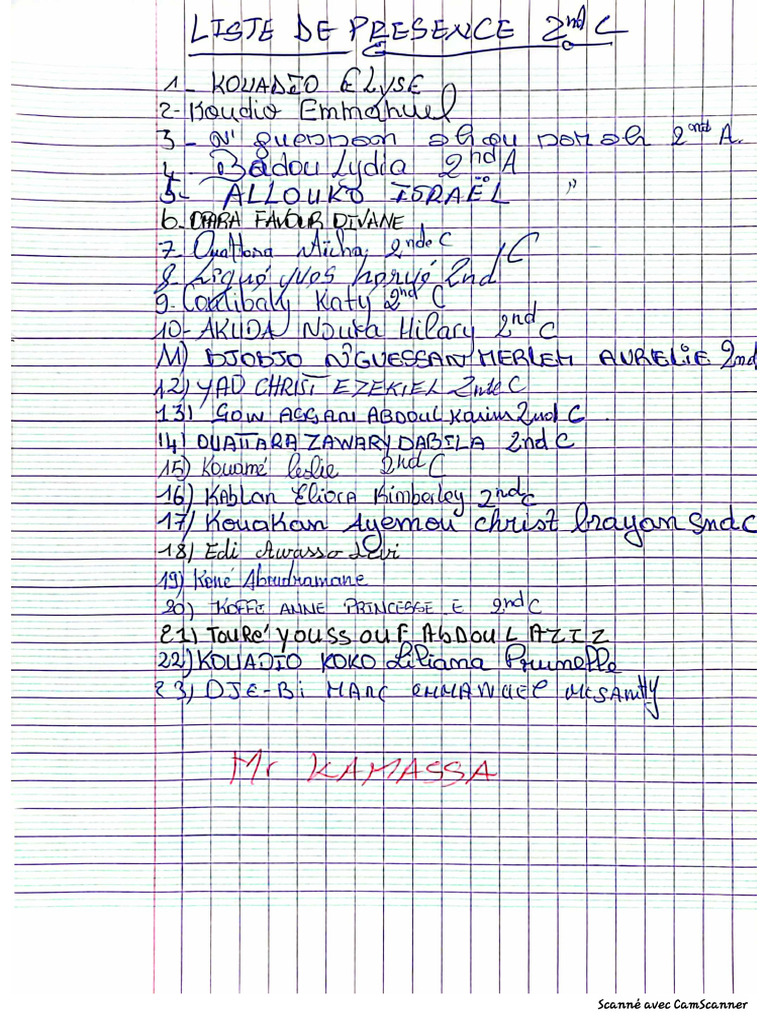 LISTE DE PRESENCE 2nd C
1- KOUADIO ELYSE
2- Koudio Emmanuel
3- N'guessan ahou 2nd A.
4- Badou Lydia 2nd A
5- ALLOUKO ISRAËL "
6. FAVOUR DIVANE
7. Ouattara Aïcha, 2nde C
8- yves hervé 2nd C
9- Coulibaly Katy 2nd C
10- AKUDA Nduka Hilary 2nd C
11) DJODJO N'GUESSAN MERLEM AURELIE 2nd
12) YAO CHRIST EZEKIEL 2nde C
13) ABDOUL Karim 2nd C
14) OUATTARA ZAWARY DABILA 2nd C
15) Kouamé leslie 2nd C
16) KABLAN Eliora Kimberley 2nd C
17) Kouakan Ayemou christ brayan 2nd C
18) Edi Awasso Levi
19) Koné Abrudramane
20) KOFFI ANNE PRINCESSE E 2nd C
21) TOURé YOUSSOUF AbDOUL AZIZ
22) KOUADIO KOKO Liliama Prunelle
23) DJE-Bi MARC EMMANUEL
Mr KAMASSA
Scanné avec CamScanner